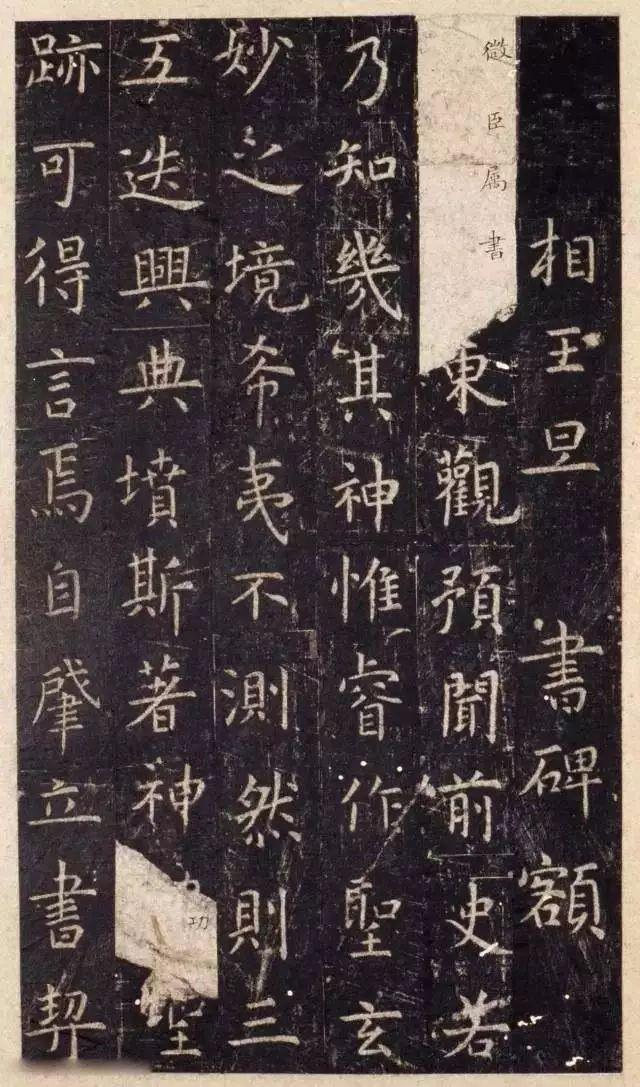 相王旦 書碑額
微臣属書東觀預聞前史若
乃知幾其神惟睿作聖玄
妙之境希夷不測然則三
五迭興典墳斯著神功聖
跡可得言焉自肇立書契